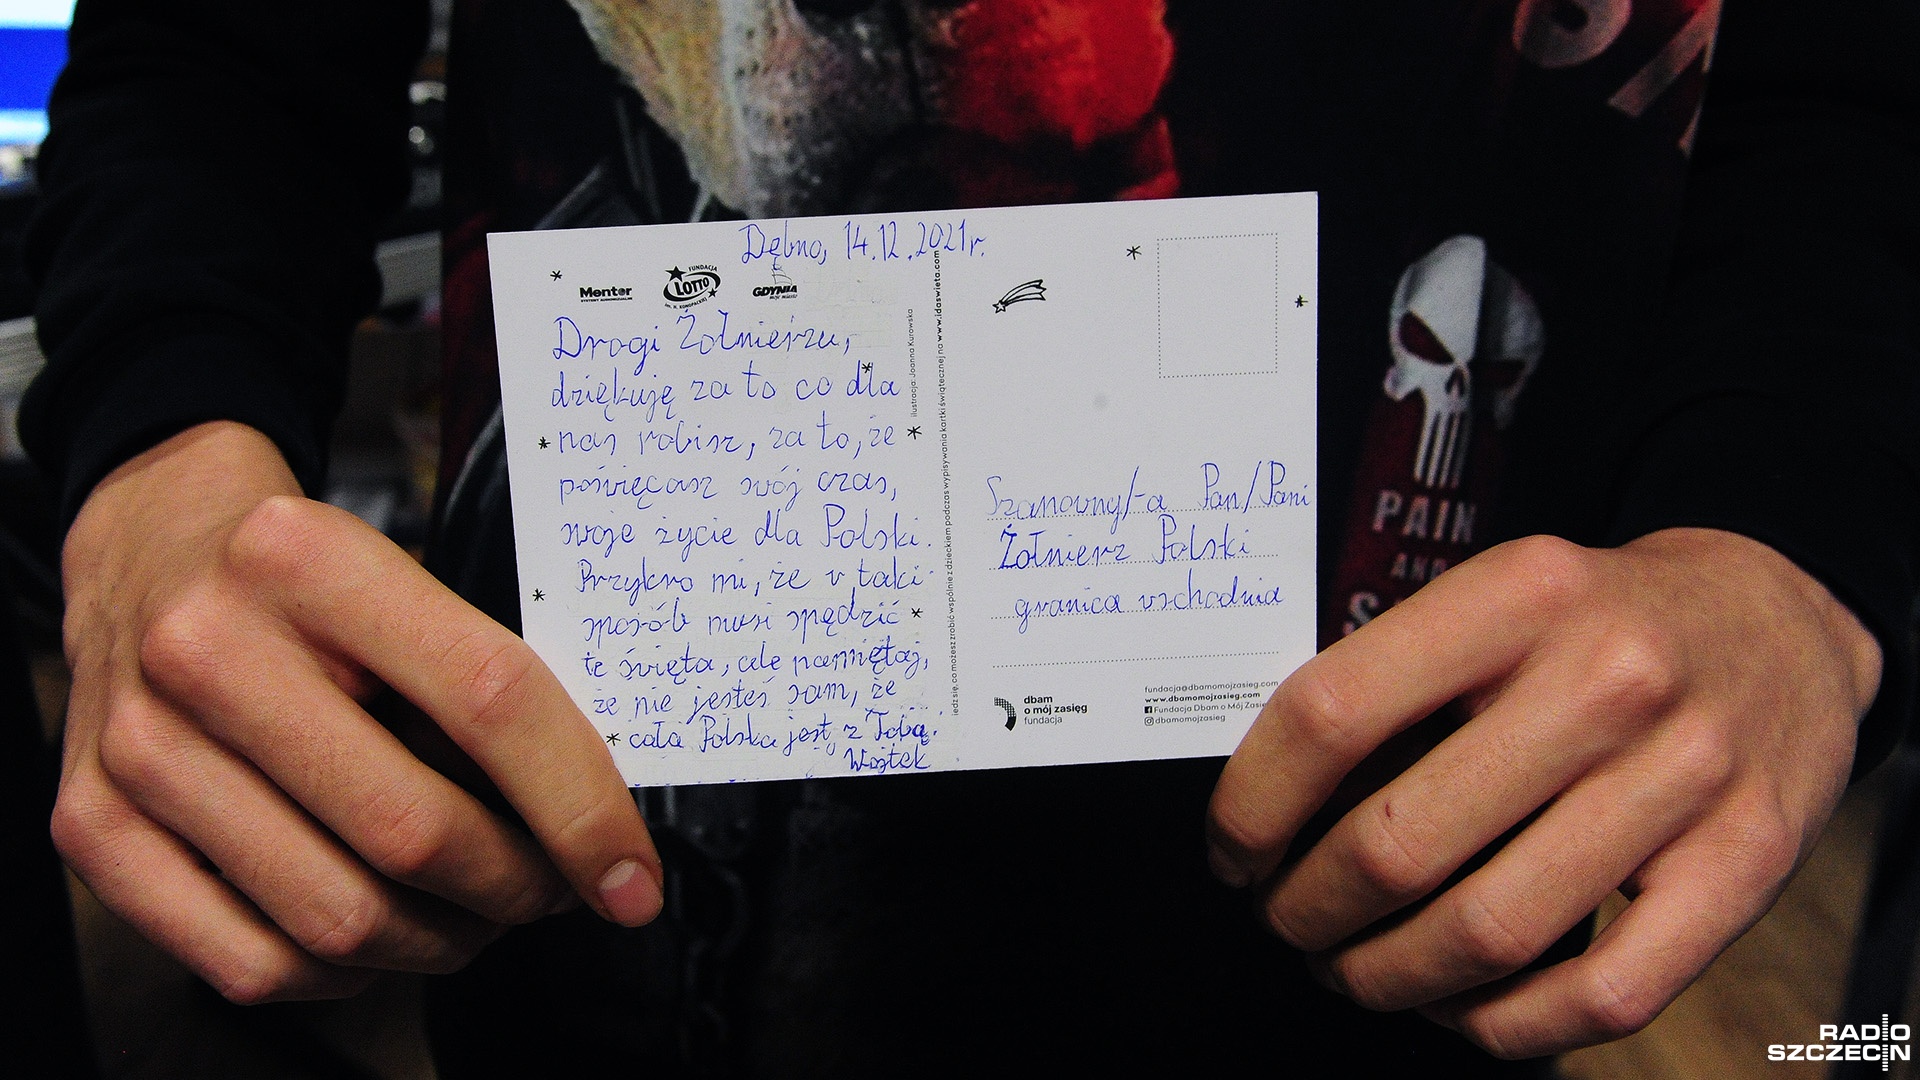 Dębno, 14.12.2021r.
Mentor
SYSTEMY AUDIOWIZUALNE
FUNDACJA
LOTTO
im. H. KONOPACKIEJ
GDYNIA
moje miasto
Drogi Żołnierzu,
dziękuję za to co dla
nas robisz, za to, że
poświęcasz swój czas,
swoje życie dla Polski.
Przykro mi, że w taki
sposób musi spędzić
te święta, ale pamiętaj,
że nie jesteś sam, że
cała Polska jest z Tobą.
Wojtek
ilustracja: Joanna Kurowska
co możesz zrobić wspólnie z dzieckiem podczas wypisywania kartki świątecznej na www.idaswieta.com
Szanowny/-a Pan/Pani
Żołnierz Polski
granica wschodnia
dbam
o mój zasięg
fundacja
fundacja@dbamomojzasieg.com
www.dbamomojzasieg.com
Fundacja Dbam o Mój Zasię
dbamomojzasieg
PAIN
AND
S
RADIO
SZCZECIN